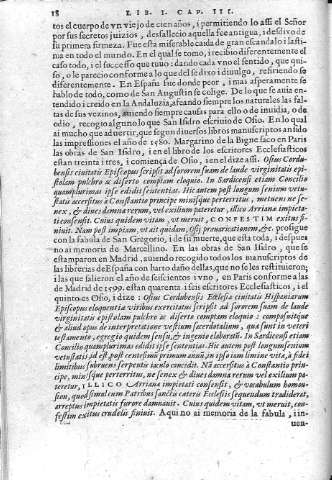 18 LIB. I. CAP. III.
tos el cuerpo de vn viejo de cien años, i permitiendo lo assi el Señor
por sus secretos juizios, desfallecio aquella fee antigua, i desdixo de
su primera firmeza. Fue esta miserable caida de gran escandalo i lasti-
ma en todo el mundo. En el qual se tomo, i recibio diferentemente el
caso todo, i el sucesso que tuuo: dando cada vno el sentido, que qui-
so, o le parecio conforme a lo que el se dixo i diuulgo, refiriendo se
diferentemente. En España fue donde peor, i mas asperamente se
hablo de todo, como de San Augustin se colige. De lo que se auia en-
tendido i creido en la Andaluzia, afeando siempre los naturales las fal-
tas de sus vezinos, auiendo siempre causas para ello o de inuidia, o de
odio, recogio algunos lo que San Isidro escriuio de Osio. En lo qual
ai mucho que aduertir, que segun diuersos libros manuscriptos an sido
las impressiones el año de 1580. Margarino de la Bigne saco en Paris
las obras de San Isidro, i en el libro de los escritores Ecclesiasticos
estan treinta i tres, i comiença de Osio, i en el dize assi. Osius Cordu-
bensis ciuitatis Episcopus scripsit ad sororem suam de laude virginitatis epi-
stolam pulchro ac diserto comptam eloquio. In Sardicensi etiam Concilio
quamplurimas ipse edidit sententias. Hic autem post longum senium vetu-
statis accersitus à Constantio principe minisque perterritus, metuens ne se-
nex, & diues damna rerum, vel exilium pateretur, illico Arriana impieta-
ti consensit. Cuius quidem vitam, vt meruit, CONFESTIM exitus fi-
niuit. Nam post impiam, vt ait quidam, Osij prauaricationem, &c. prosigue
con la fabula de San Gregorio, i de su muerte, que esta toda, i despues
no ai memoria de Marcellino. En las obras de San Isidro, que se
estamparon en Madrid, auiendo recogido todos los manuscriptos de
las librerias de España con harto daño dellas, que no se les restituyeron;
i las que salieron el año de seiscientos i vno, en Paris conforme a las
de Madrid de 1599. estan quarenta i seis escritores Ecclesiasticos, i el
quinto es Osio, i dize: Osius Cordubensis Ecclesiæ ciuitatis Hispaniarum
Episcopus eloquentiæ viribus exercitatus scripsit ad sororem suam de laude
virginitatis epistolam pulchro ac diserto comptam eloquio: composuitque
& aliud opus de interpretatione vestium sacerdotalium, quæ sunt in veteri
testamento, egregio quidem sensu, & ingenio elaboratū. In Sardicensi etiam
Concilio quamplurimas edidit ipse sententias. Hic autem post longum senium
vetustatis, id est, post centesimū primum annū, in ipso iam limine vitæ, à fidei
limitibus subruens serpentis iaculo concidit. Nā accersitus à Constantio prin-
cipe, minisque perterritus, ne senex & diues damna rerum vel exilium pa-
teretur, ILLICO Arriana impietati consensit, & vocabulum homou-
sion, quod simul cum Patribus sanctis cæteris Ecclesijs sequendum tradiderat,
arreptus impietatis furore damnauit. Cuius quidem vitam, vt meruit, con-
festim exitus crudelis finiuit. Aqui no ai memoria de la fabula, i in-
uen-